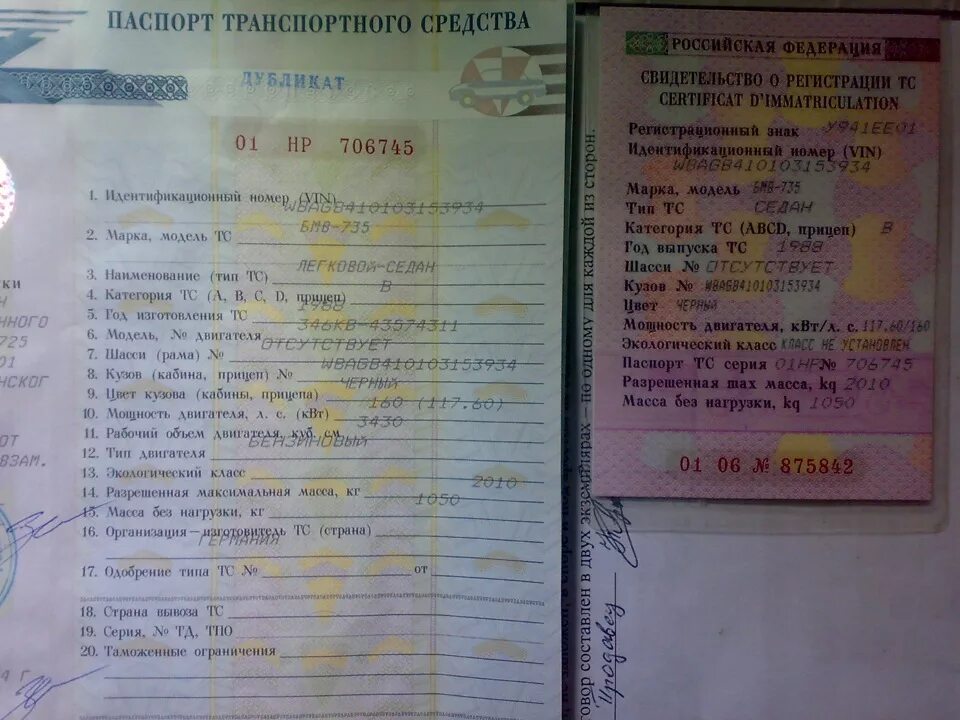 ПАСПОРТ ТРАНСПОРТНОГО СРЕДСТВА
ДУБЛИКАТ
01 НР 706745
1. Идентификационный номер (VIN) WBAGB410103153934
2. Марка, модель ТС БМВ-735
3. Наименование (тип ТС) ЛЕГКОВОЙ-СЕДАН
4. Категория ТС (А, В, С, D, прицеп) В
5. Год изготовления ТС 1988
6. Модель, № двигателя 346KB-43574311
7. Шасси (рама) № ОТСУТСТВУЕТ
8. Кузов (кабина, прицеп) № WBAGB410103153934
9. Цвет кузова (кабины, прицепа) ЧЕРНЫЙ
10. Мощность двигателя, л. с. (кВт) 160 (117.60)
11. Рабочий объем двигателя, куб. см 3430
12. Тип двигателя БЕНЗИНОВЫЙ
13. Экологический класс
14. Разрешенная максимальная масса, кг 2010
15. Масса без нагрузки, кг 1050
16. Организация–изготовитель ТС (страна)
ГЕРМАНИЯ
17. Одобрение типа ТС № от
18. Страна вывоза ТС
19. Серия, № ТД, ТПО
20. Таможенные ограничения
ки
Н
ННОГО
725
01
НСКОГ
ОТ
ВЗАМ.
4 Г
РОССИЙСКАЯ ФЕДЕРАЦИЯ
СВИДЕТЕЛЬСТВО О РЕГИСТРАЦИИ ТС
CERTIFICAT D'IMMATRICULATION
Регистрационный знак У941ЕЕ01
Идентификационный номер (VIN)
WBAGB410103153934
Марка, модель БМВ-735
Тип ТС СЕДАН
Категория ТС (ABCD, прицеп) В
Год выпуска ТС 1988
Шасси № ОТСУТСТВУЕТ
Кузов № WBAGB410103153934
Цвет ЧЕРНЫЙ
Мощность двигателя, кВт/л. с. 117.60/160
Экологический класс КЛАСС НЕ УСТАНОВЛЕН
Паспорт ТС серия 01НР № 706745
Разрешенная max масса, kg 2010
Масса без нагрузки, kg 1050
01 06 № 875842
по одному для каждой из сторон.
говор составлен в двух экземплярах –
Продавец